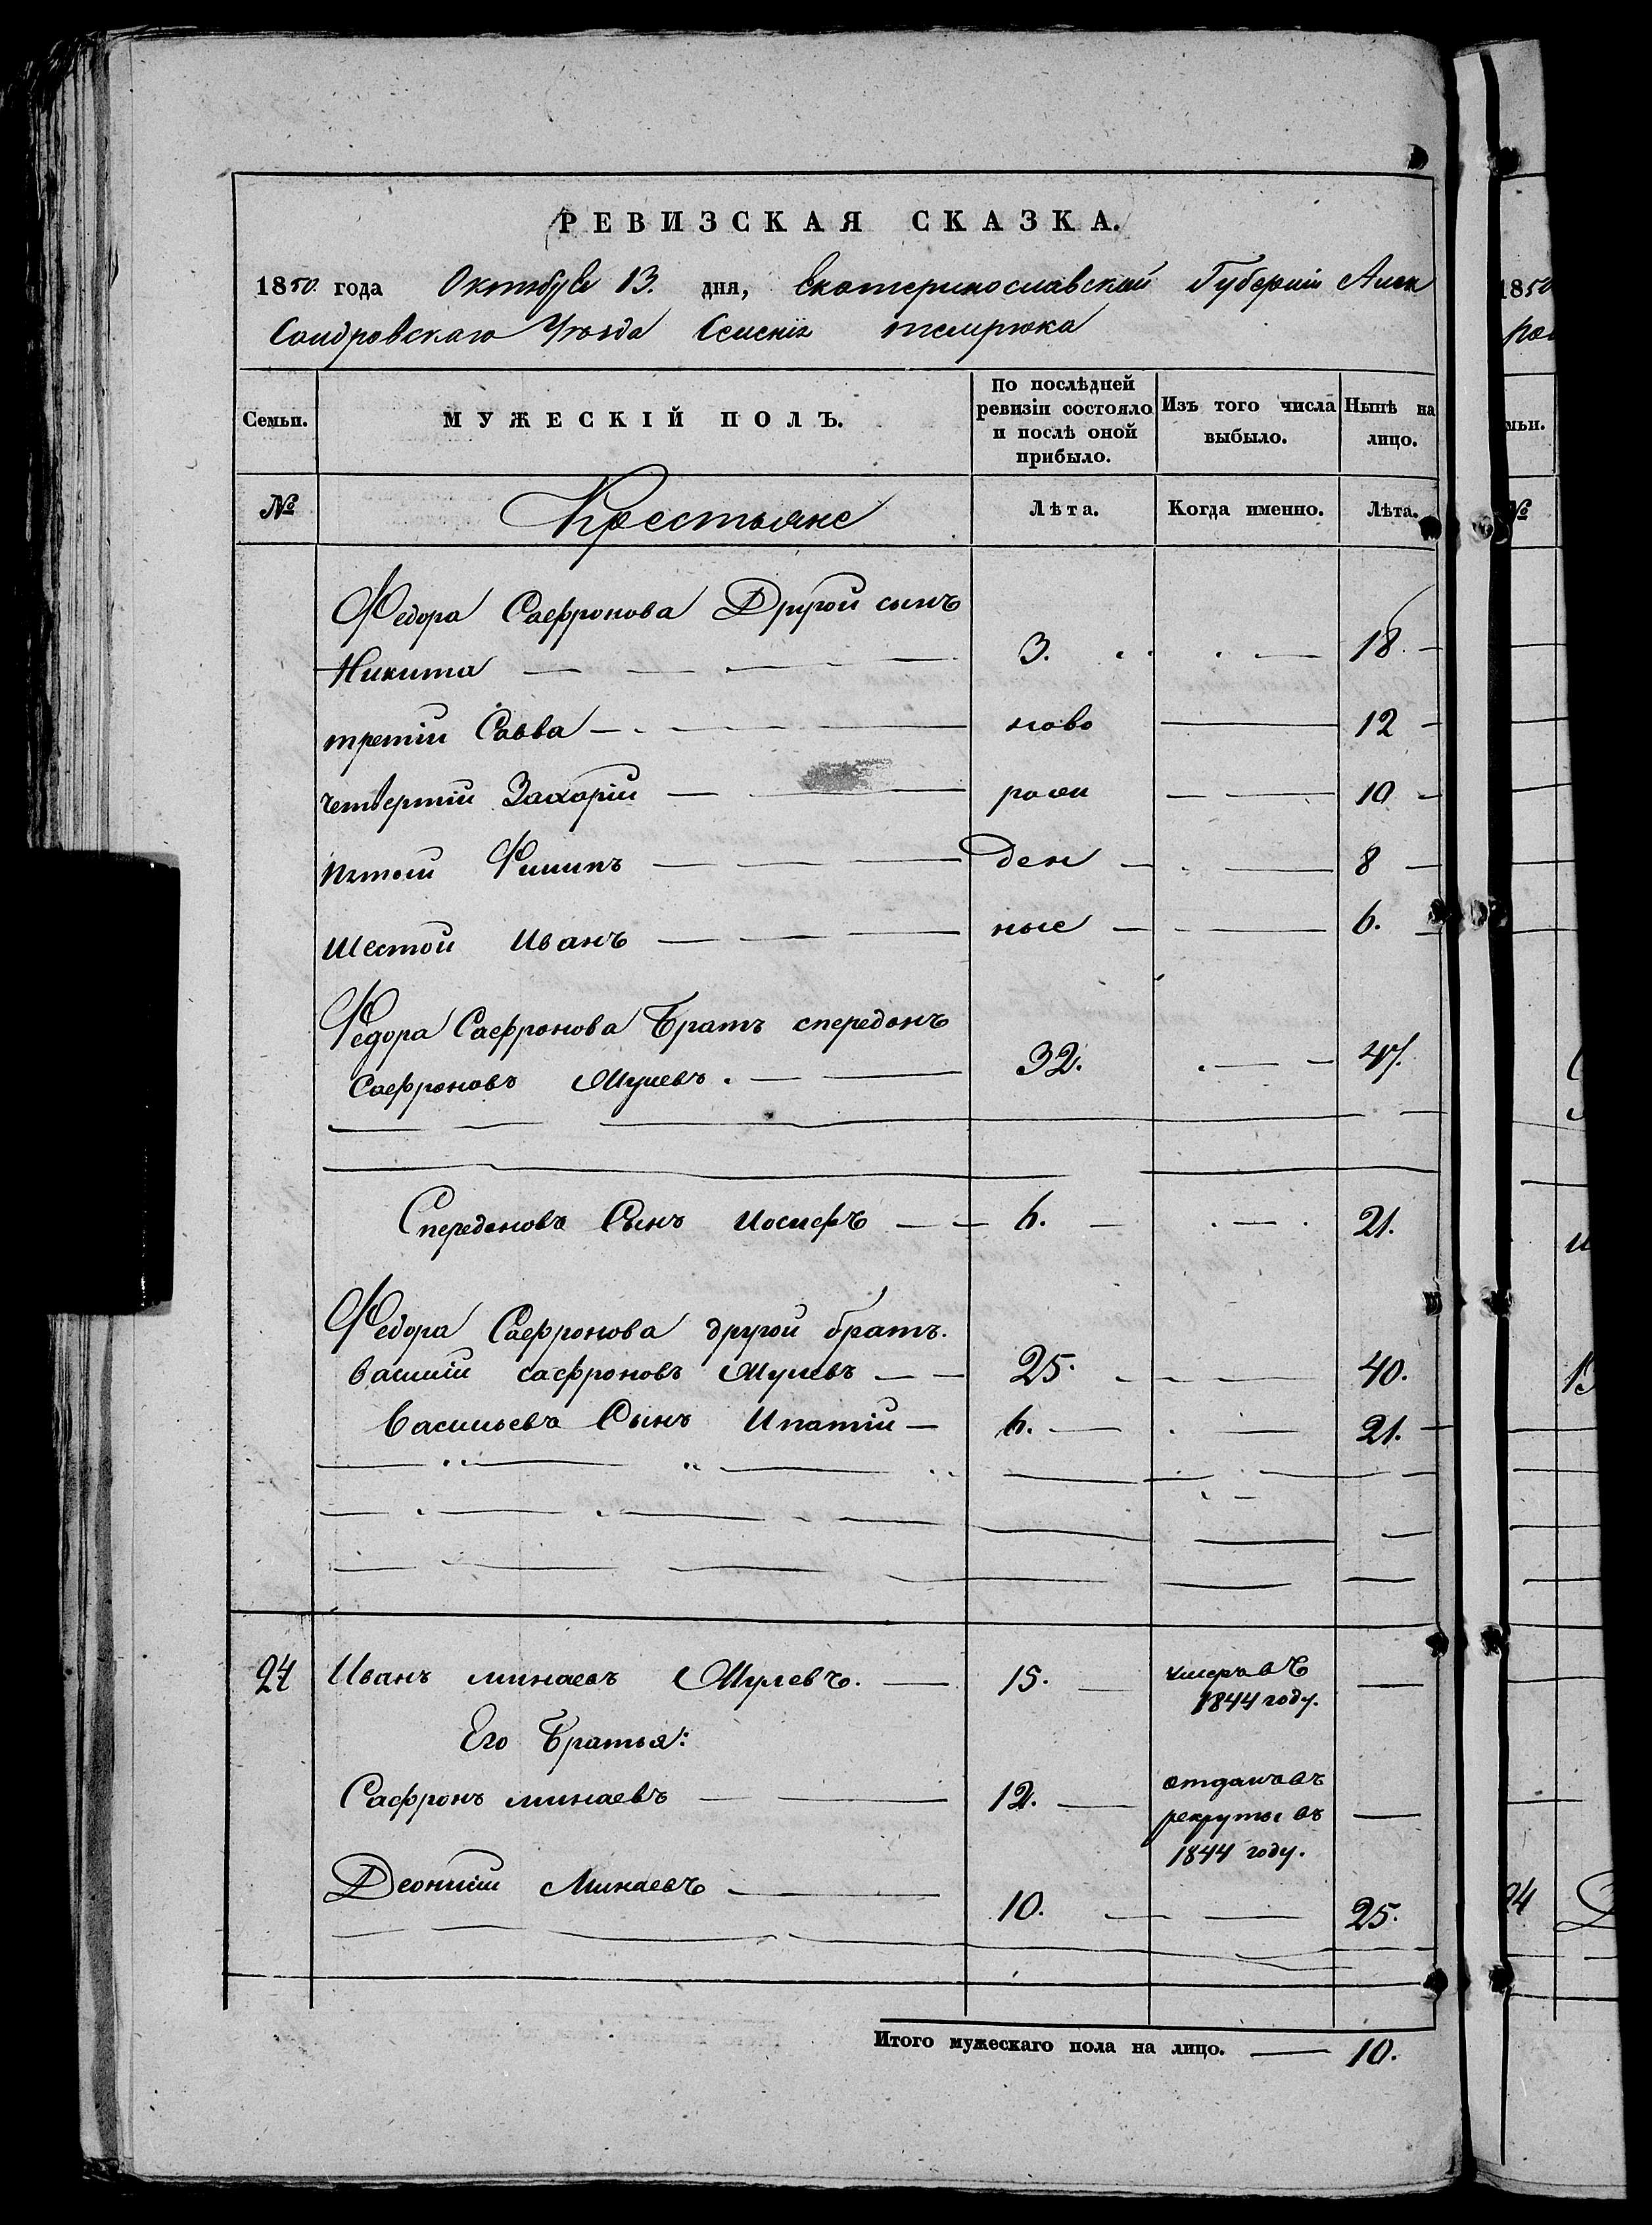 РЕВИЗСКАЯ СКАЗКА.
1850 года Октября 13. дня, Екатеринославской Губерніи Алек
сандровскаго Уѣзда Селенія темрюка
Семьи. МУЖЕСКІЙ ПОЛЪ. По послѣдней ревизіи состояло и послѣ оной прибыло. Изъ того числа выбыло. Нынѣ на лицо.
№ Крестьяне Лѣта. Когда именно. Лѣта.
Федора Сафронова Другой сынъ
Никита 3. 18.
третій Савва ново 12
четвертій Захарій рож 10
пятой Филипъ ден 8
шестой Иванъ ные 6.
Федора Сафронова Братъ спередонъ
Сафроновъ 32. 47.
Спередонова Сынъ Иосифъ 6. 21.
Федора Сафронова другой братъ.
Василій сафроновъ 25. 40.
Васильева Сынъ Ипатій 6. 21.
24 Иванъ минаевъ 15. умеръ въ
1844 году.
Его Братья:
Сафронъ минаевъ 12. отданъ въ
рекруты въ
1844 году.
Деонисій Минаевъ 10. 25.
Итого мужескаго пола на лицо. 10.
1850
мьи.
№
24